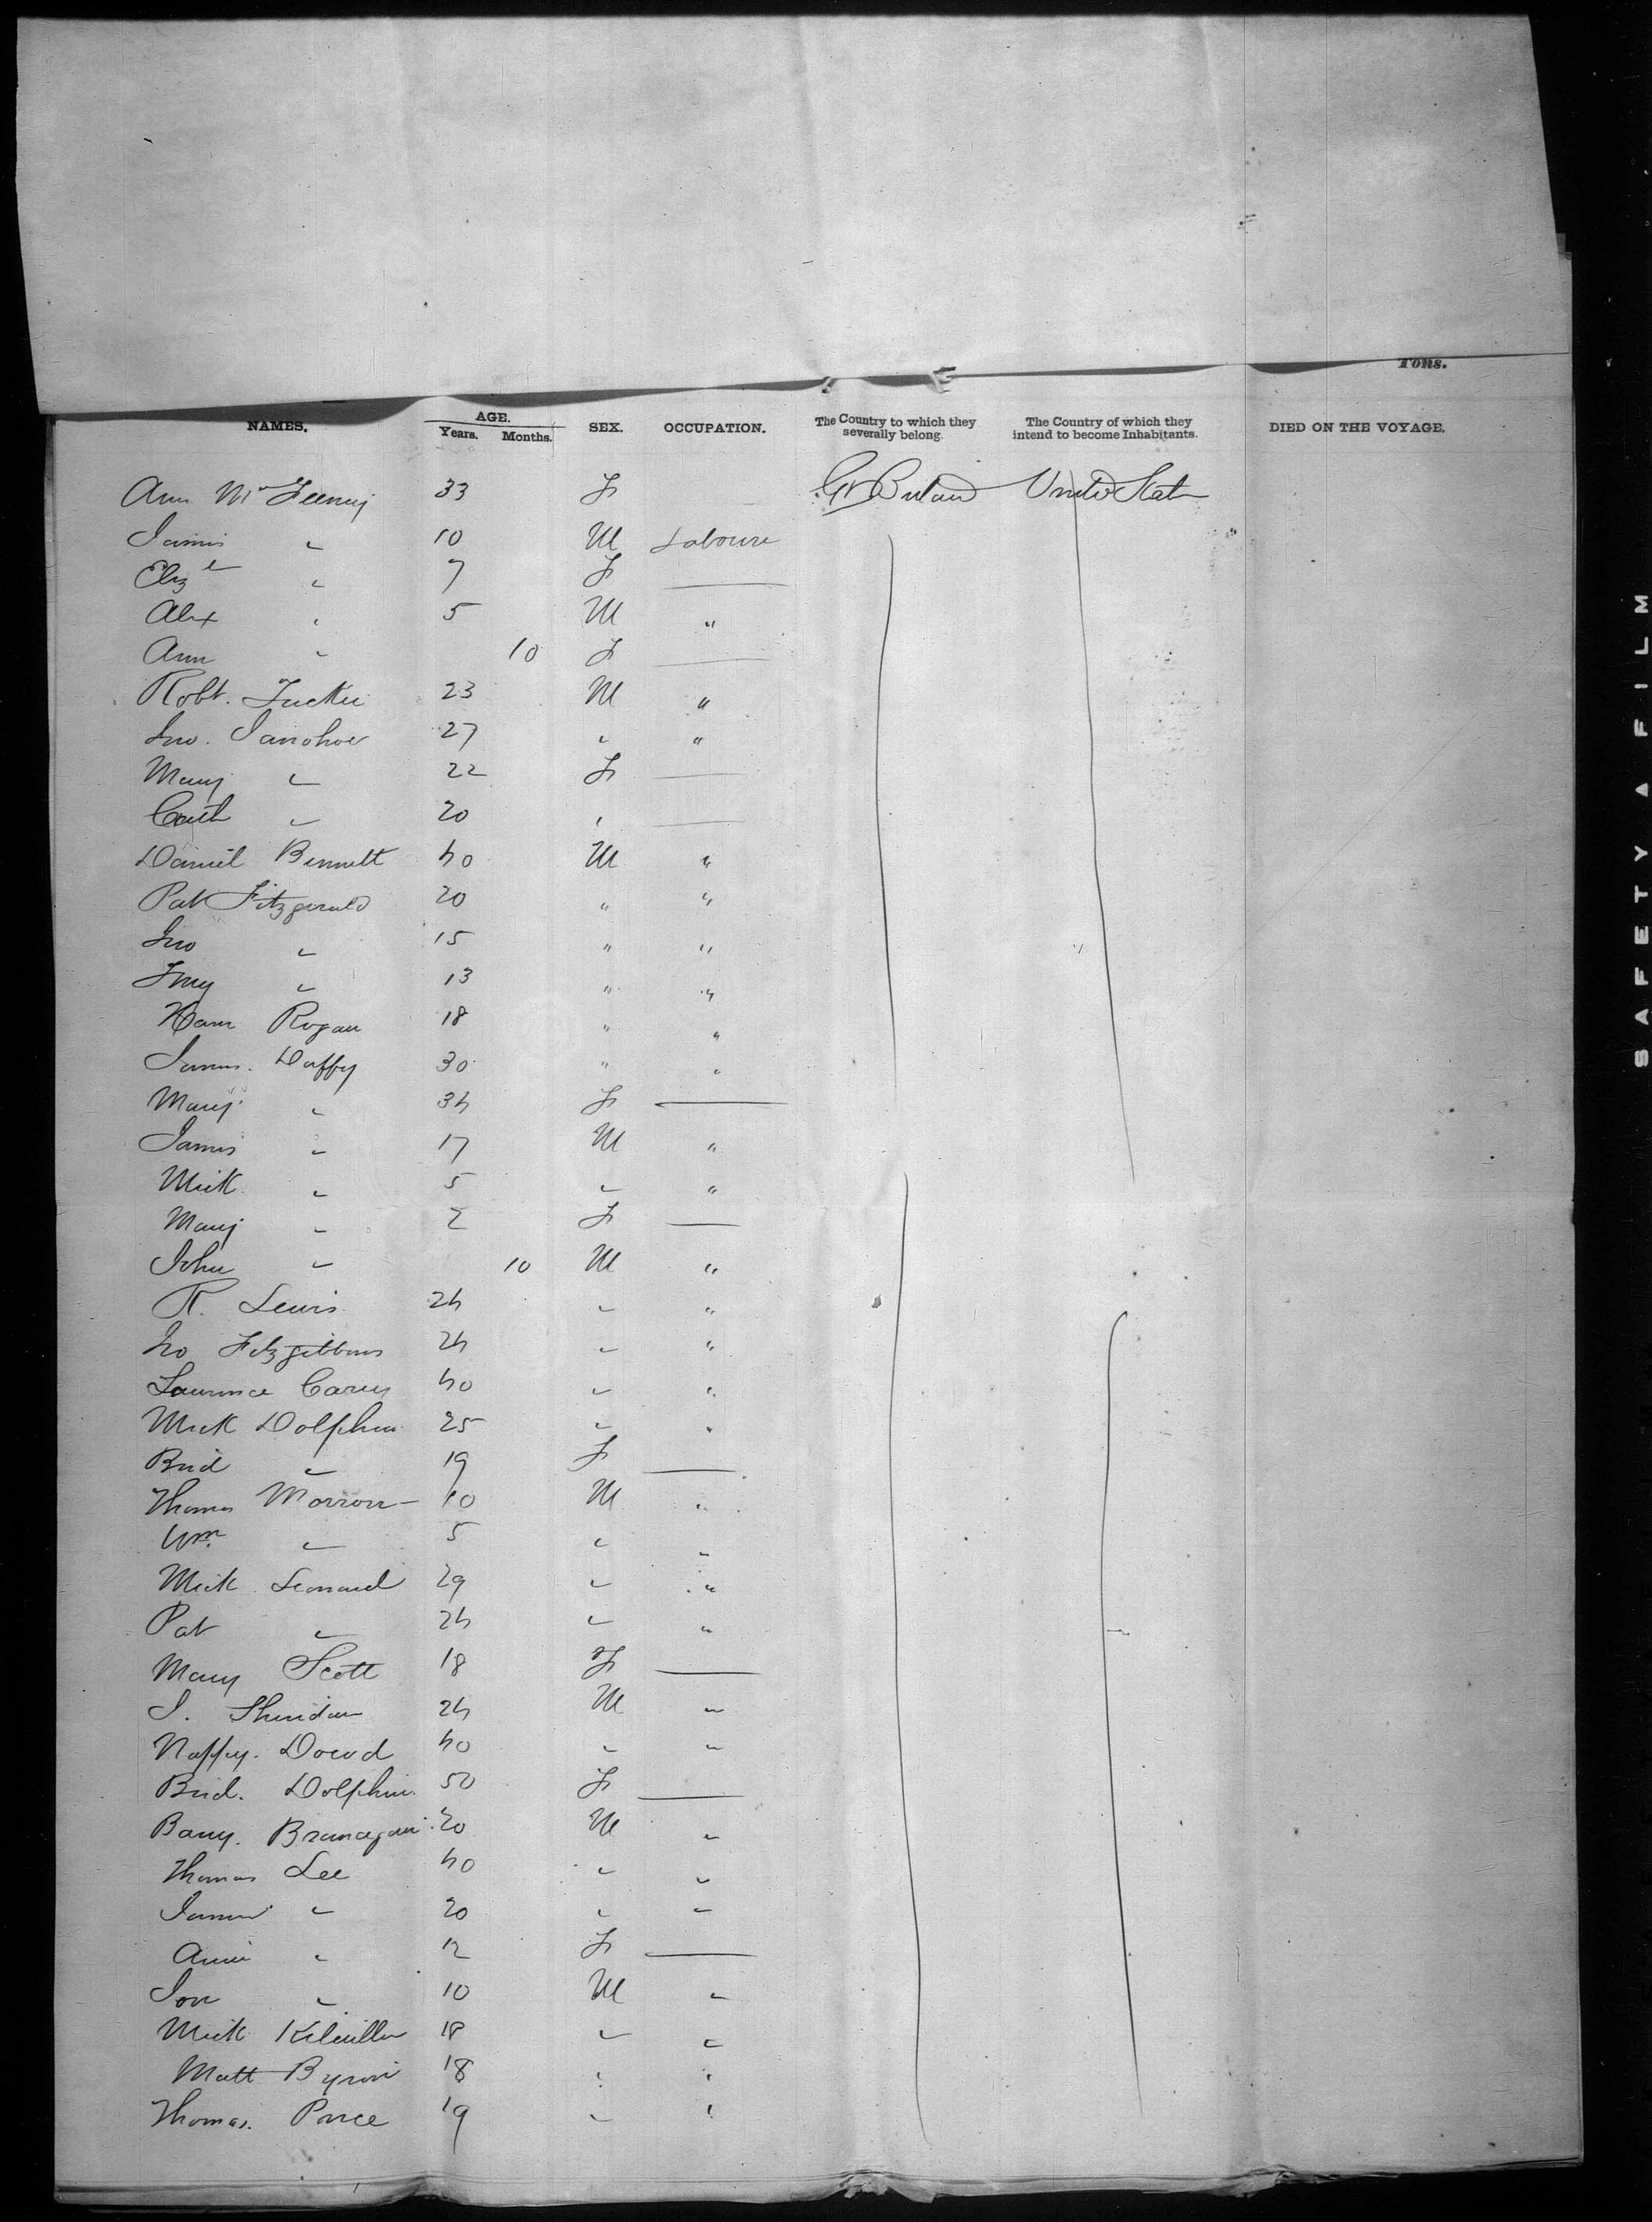 Tons.
NAMES. AGE. Years. Months. SEX. OCCUPATION. The Country to which they severally belong. The Country of which they intend to become Inhabitants. DIED ON THE VOYAGE.
Ann McFeeney 33 F Gt Britain United States
James " 10 M Laboure
Eliz " 7 F —
Alex " 5 M "
Ann " 10 F —
Robt. Tucker 23 M "
Jno. Janohoe 27 " "
Mary " 22 F —
Cath " 20 " —
Daniel Bennett 40 M "
Pat Fitzgerald 20 " "
Jno " 15 " "
" 13 " "
Rogan 18 " "
James. Duffy 30 " "
Mary " 34 F —
James " 17 M "
Mick " 5 " "
Mary " 2 F —
John " 10 M "
R. Lewis 24 " "
Jno Fitzgibbons 24 " "
Laurence Carey 40 " "
Mick Dolphin 25 " "
Brid " 19 F —
Thomas Morron 10 M "
Wm. " 5 " "
Mick Leonard 29 " "
Pat " 24 " "
Mary Scott 18 F —
J. Sheridan 24 M "
Dowd 40 " "
Brid. Dolphin 50 F —
Barry. Branagan 20 M "
Thomas Lee 40 " "
James " 20 " "
Annie " 12 F —
" 10 M "
Mick 18 " "
Matt Byron 18 " "
Thomas. Price 19 " "
SAFETY ▲ FILM